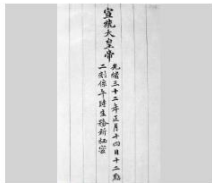 宣統大皇帝
光緒三十二年正月十四日十二點
二刻係午時生